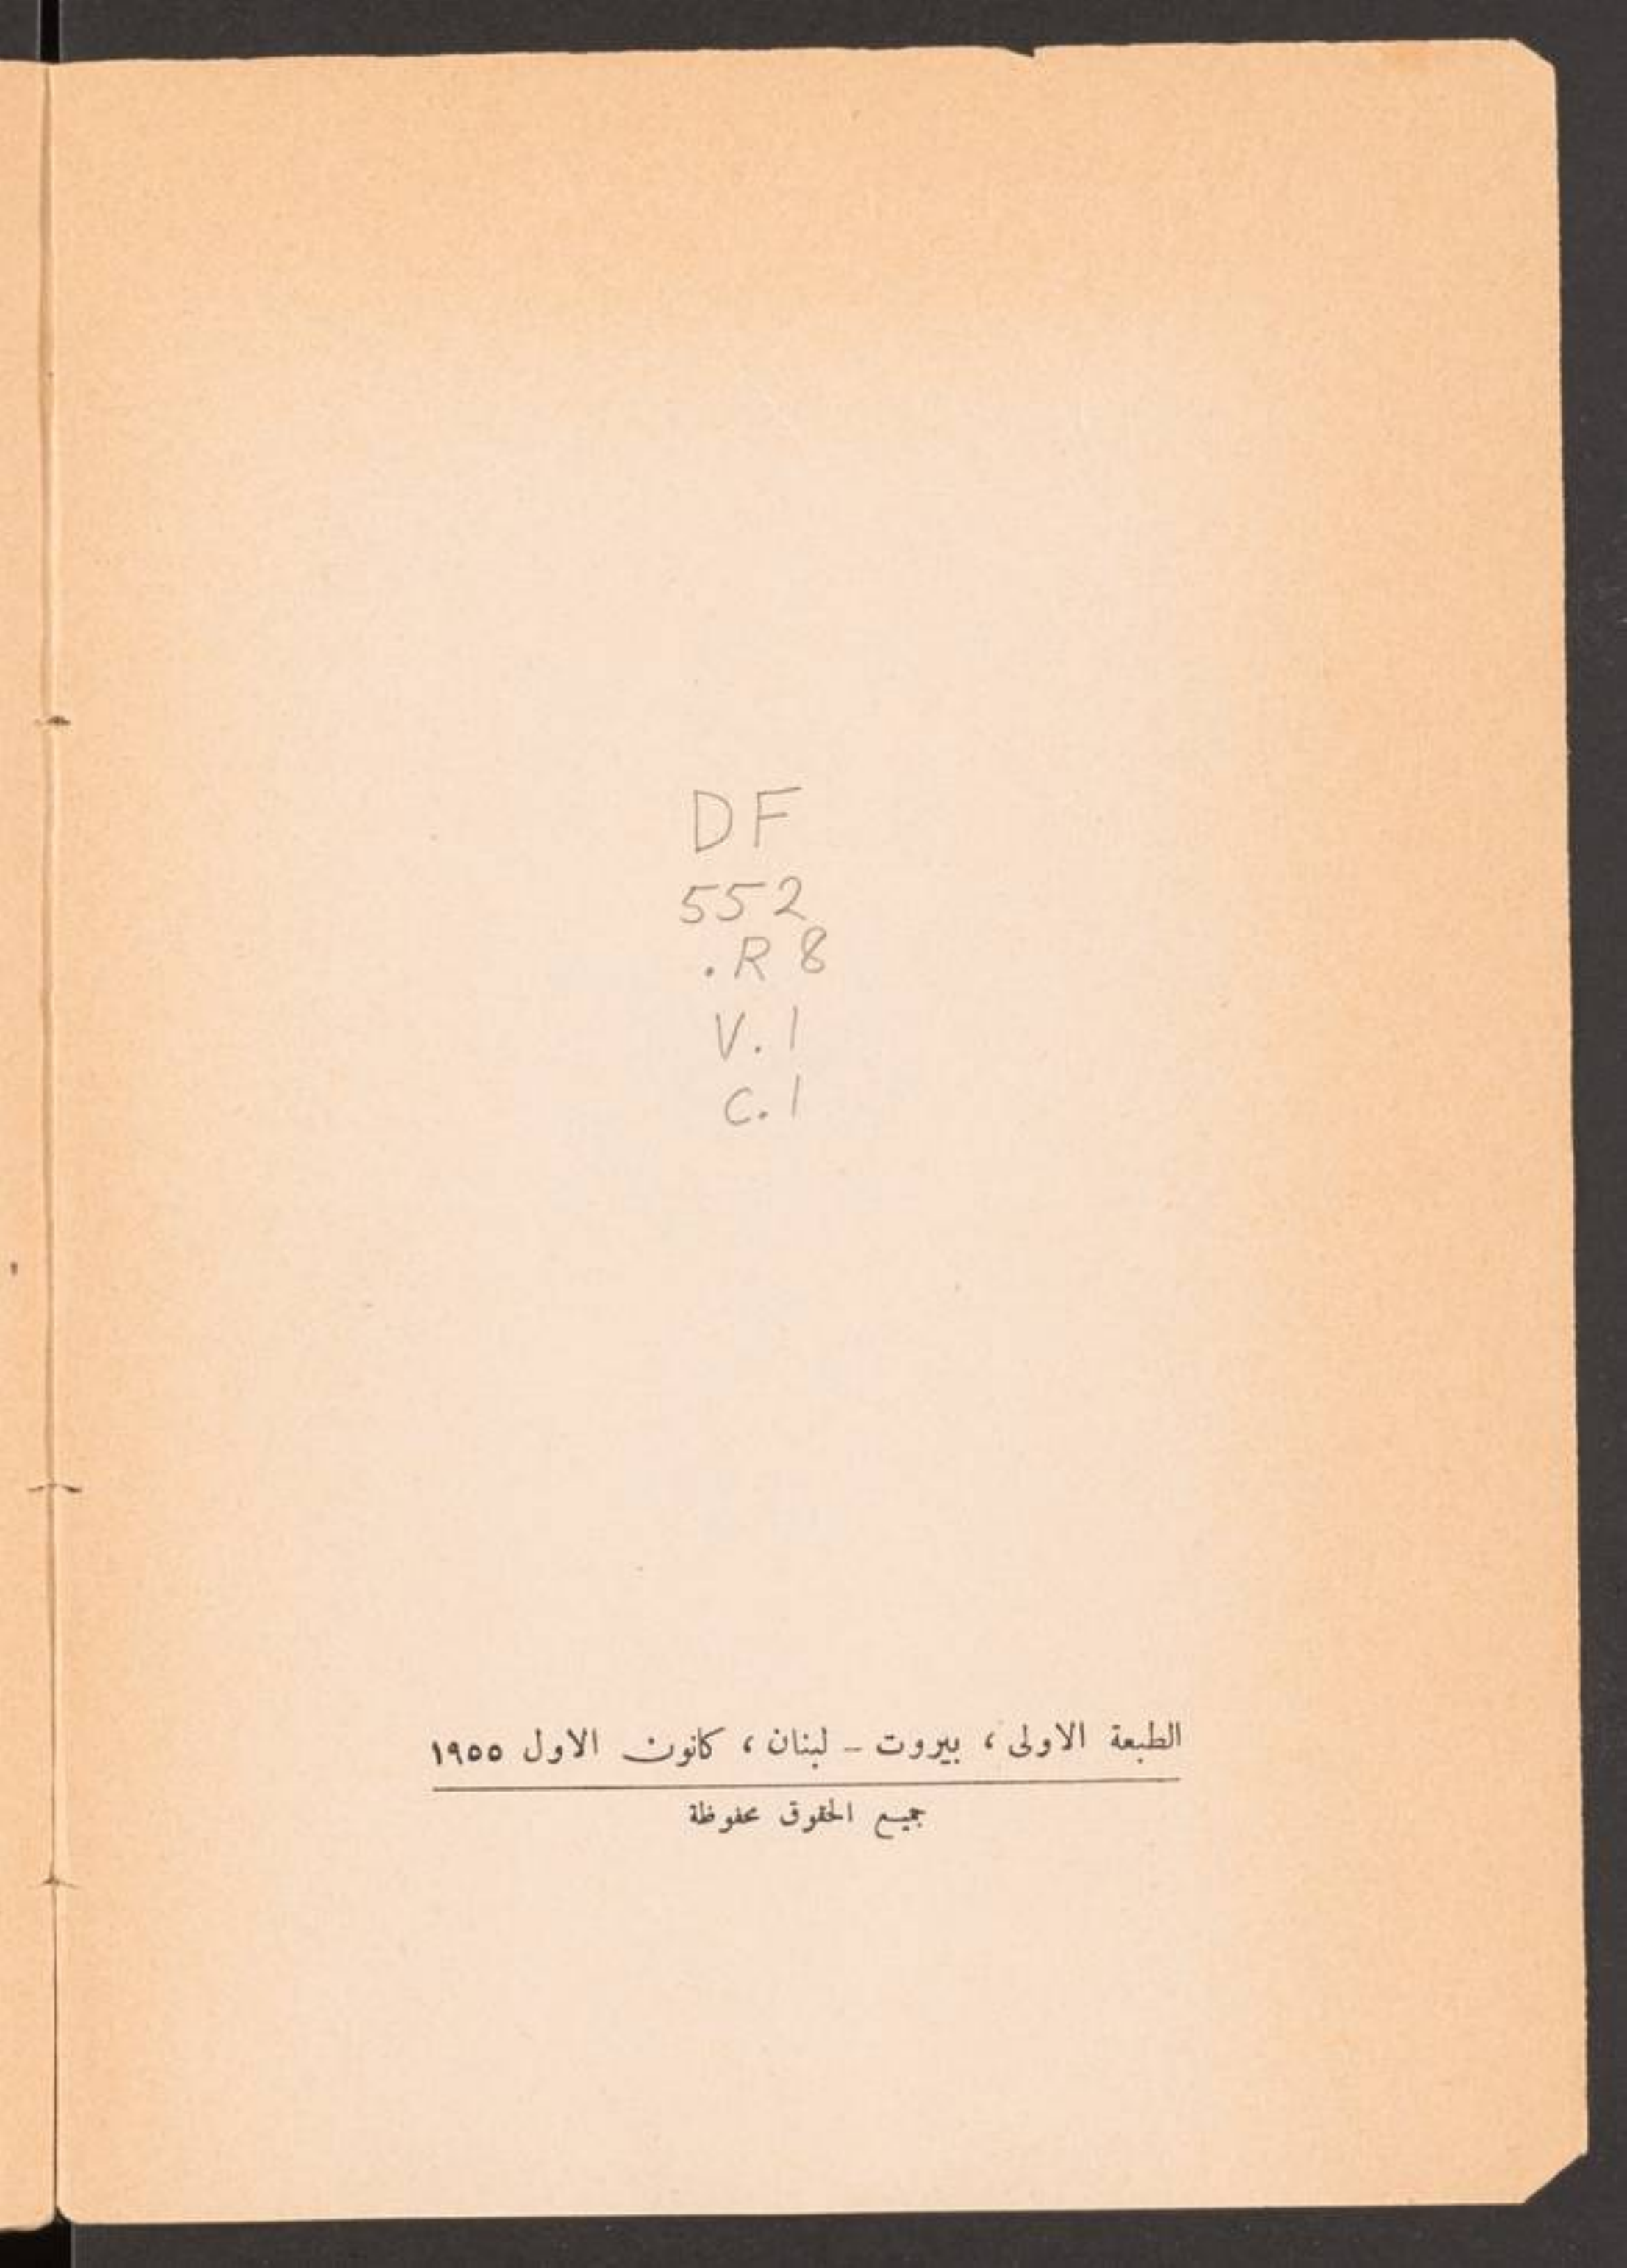 DF
552
.R8
V.1
C.1
الطبعة الاولى ، بيروت – لبنان ، كانون الاول ١٩٥٥
جميع الحقوق محفوظة